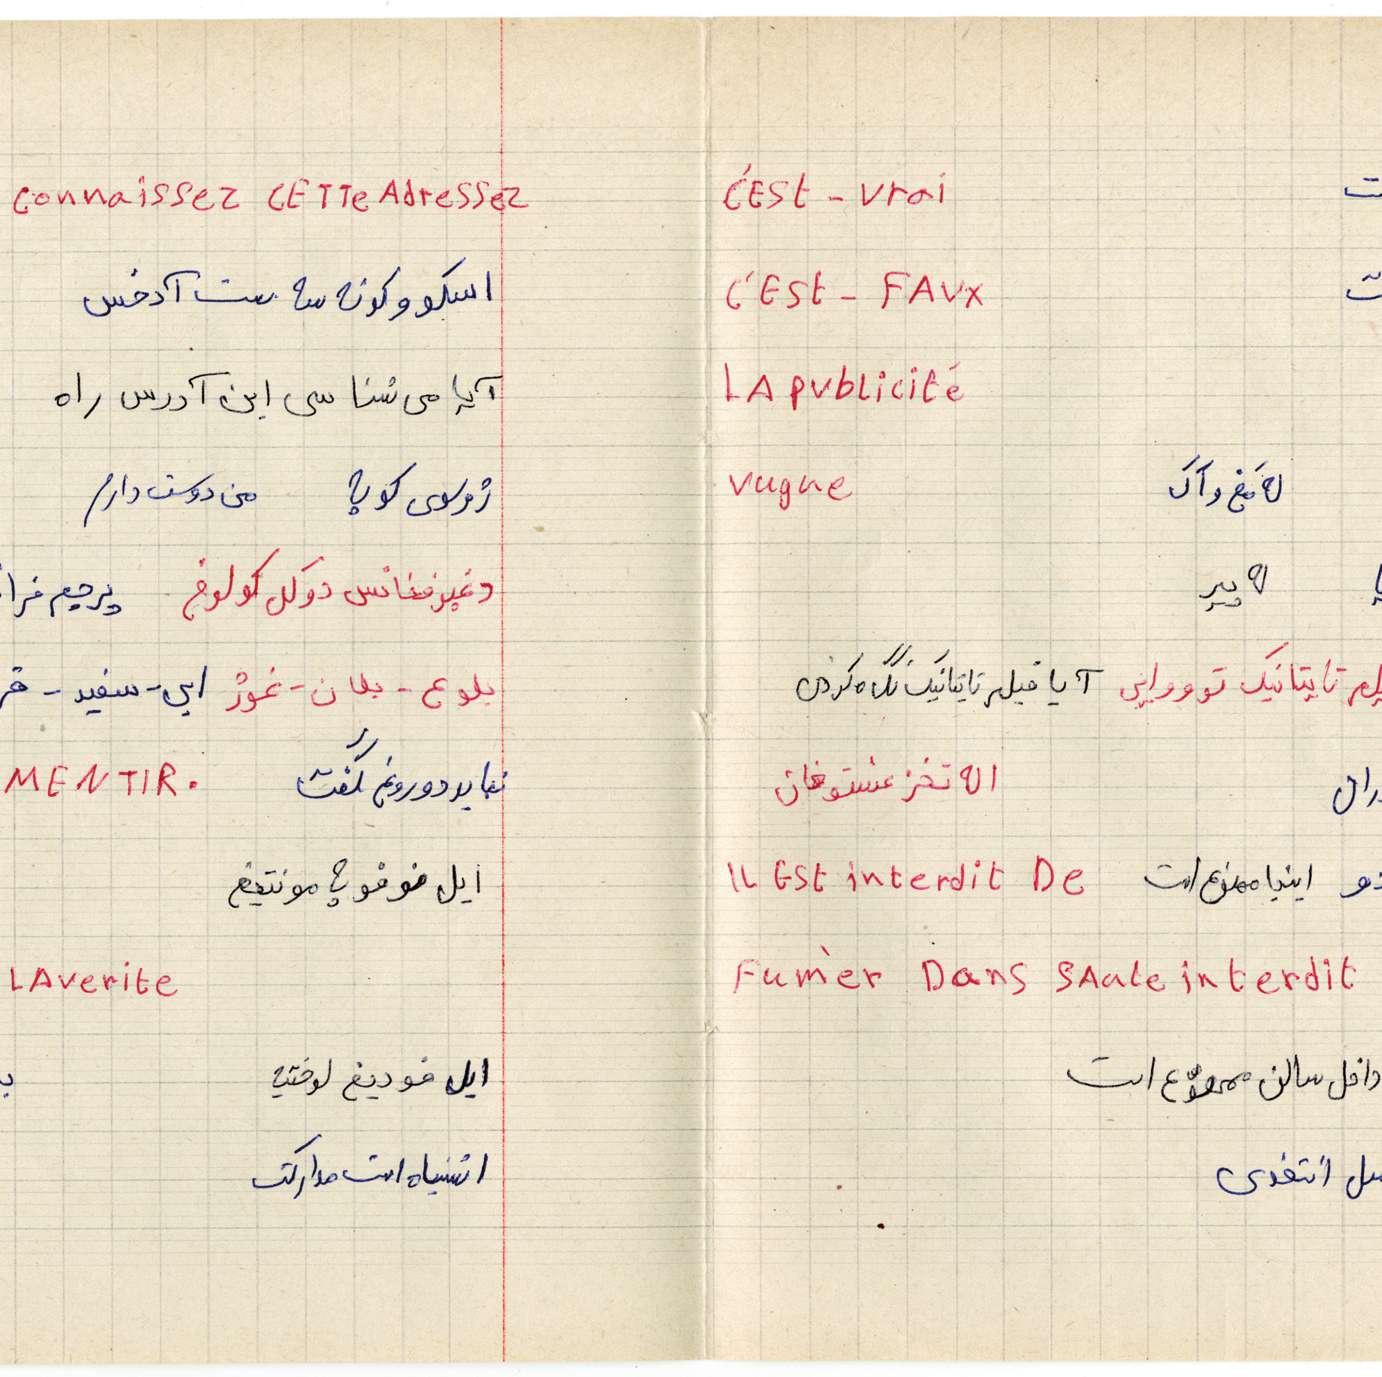 connaissez CETTe Adressez
اسکو و کونه سه ست آدخس
آیا می شناسی این آدرس راه
ژوسوی کوپ من دوست دارم
دغپو فغانس دوکل کولوغ پرچم فرا
بلوع - بلان - غوژ ابی - سفید - قر
MENTIR. نباید دوروغ گفت
ایل فوفوپ مونتیغ
LAverite
ایل فودیغ لوختیه
اشتباه است مدارکت
C'ESt - vrai
C'ESt - FAux
LA publicité
vague له مغ واک
له پیر
یلم تایتانیک توووایی آیا فیلم تایتانیک نگاه کردی
اله تخز عشتوغان
IL ESt interdit De اینجا ممنوع است
Fumèr Dans SAale interdit
داخل سالن ممنوع است
سل انتغدی